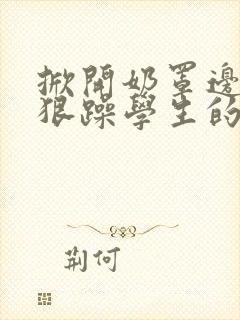 掀開奶罩邊
狠躁學生的
荆何